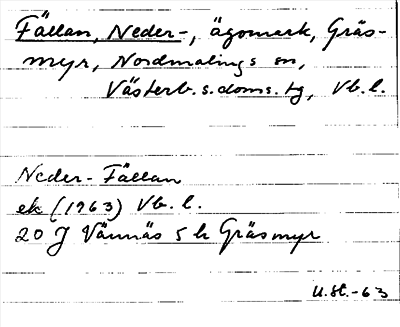 Fällan, Neder-, ägomark, Gräs-
myr, Nordmalings sn,
Västerb. s. doms. tg, Vb. l.
Neder-Fällan
ek (1963) Vb. l.
20 J Vännäs 5 h Gräsmyr
U. St. -63